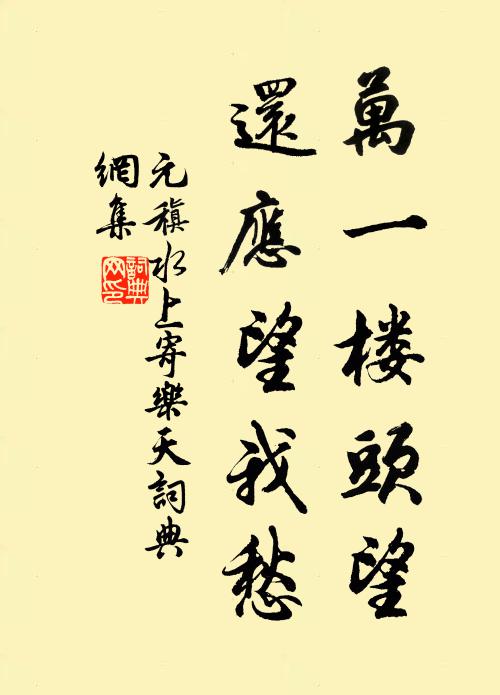 萬一楼頭望
還應望我愁
元稹水上寄樂天詞典
網集
詞典
网印